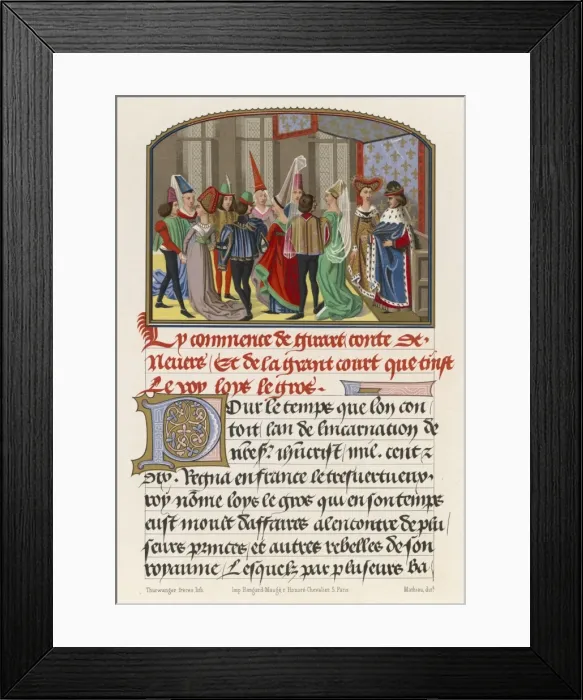 Cy commence de Girart conte de
Nevers / Et de la grant court que tinst
Le roy loys le gros .
Pour le temps que lon con
toit / lan de lincarnation de
mil . cent &
dix . Regna en france le tresvertueux
roy nōme loys le gros qui en son temps
eust moult daffaires alencontre de plu /
seurs princes / et autres rebelles de son
royaume / Lesquelz par pluiseurs ba /
Imp. Hangard-Maugé, r. Honoré Chevalier, 5, Paris
Mathieu, dirᵗ